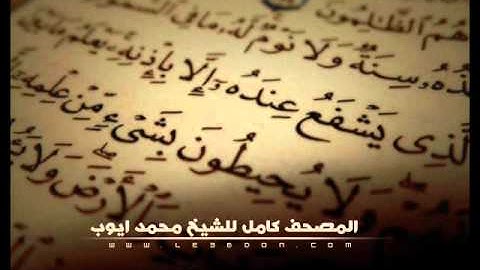 هُمُ الظَّٰلِمُونَ
سِنَةٌ وَلَا نَوْمٌ لَّهُ مَا فِي السَّمَٰوَ
لَّذِى يَشْفَعُ عِندَهُ إِلَّا بِإِذْنِهِ يَعْلَمُ مَا بَيْنَ
وَلَا يُحِيطُونَ بِشَىْءٍ مِّنْ عِلْمِهِ
الْأَرْضَ وَلَا
المصحف كامل للشيخ محمد ايوب